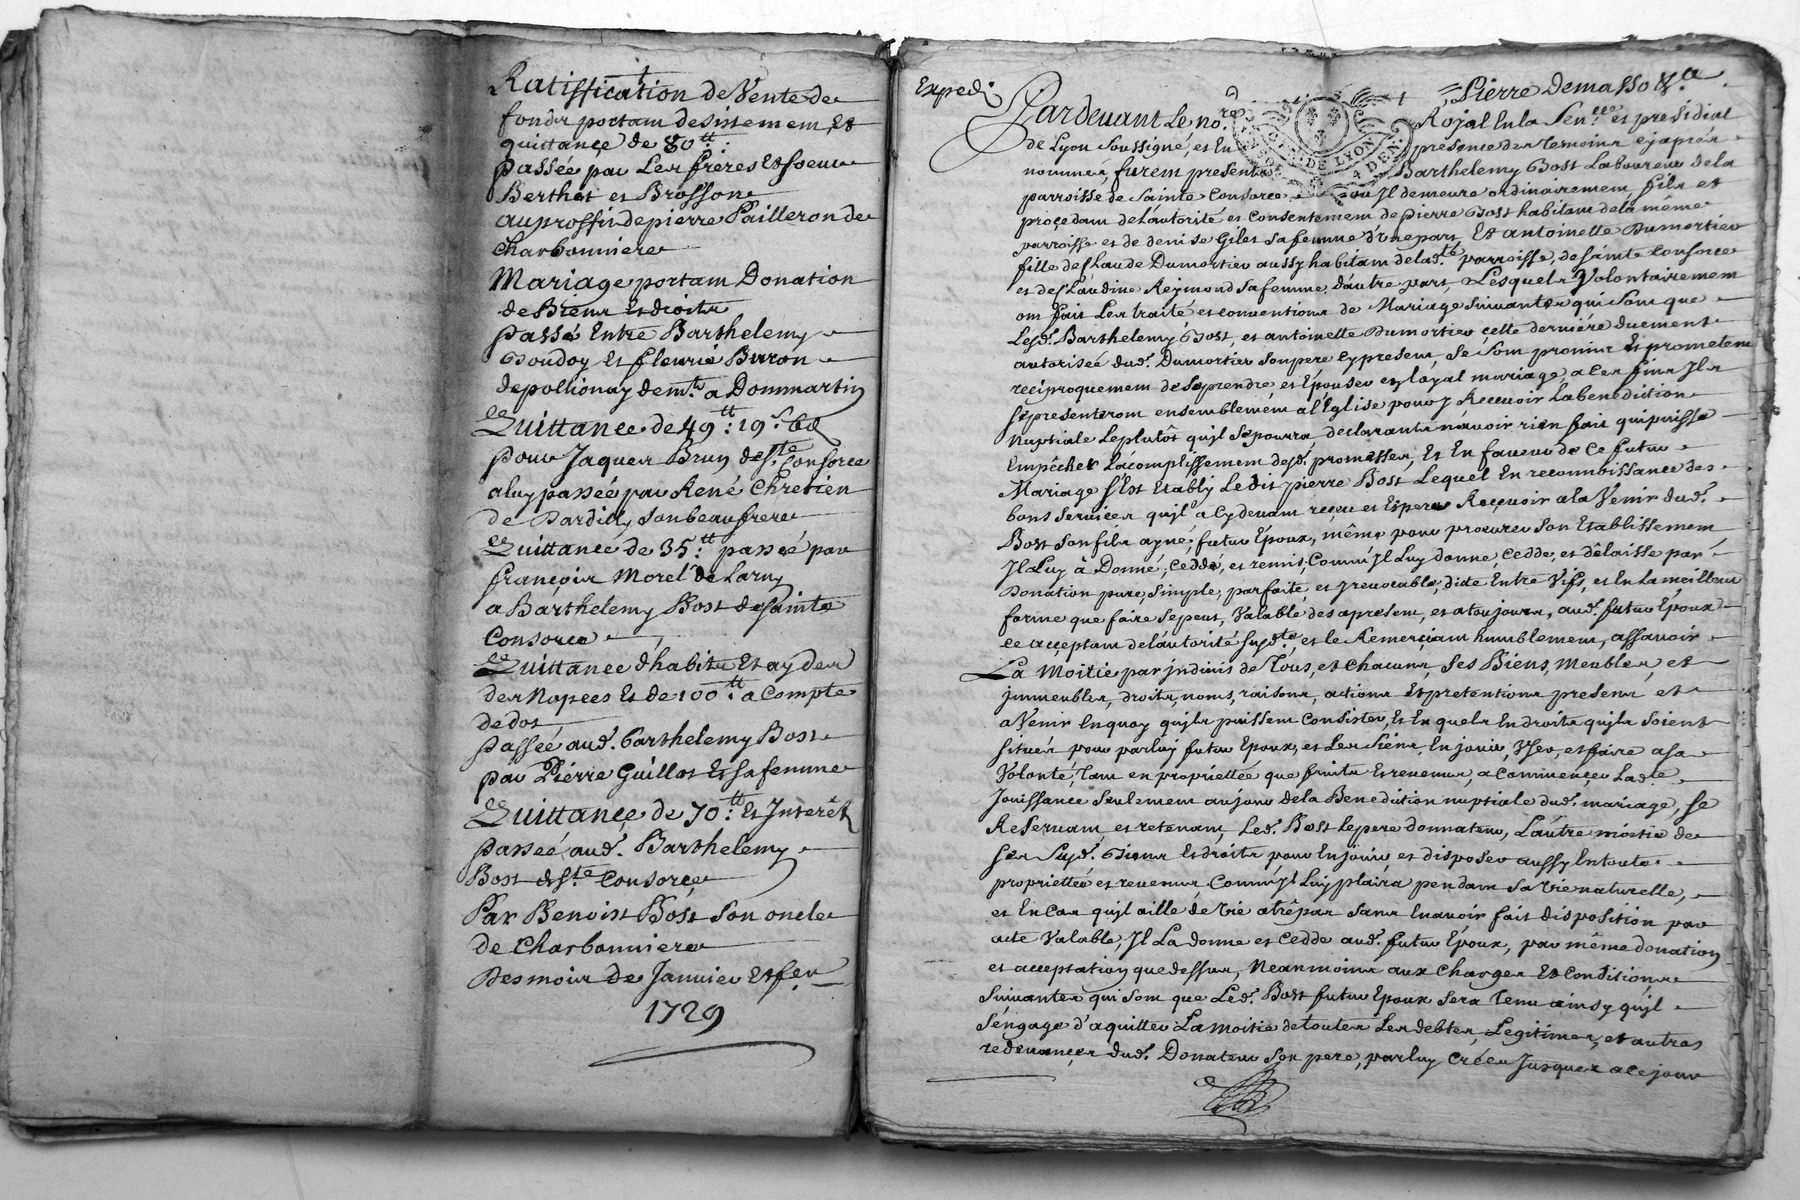 Ratiffication de Vente de
fondz portant desistement, Et
quittance de 80tt:
passée par Les freres Et soeur
Berthet et Brosson
au proffin de pierre Pailleron de
Charbonniere
Mariage portant Donation
de Biens Et droits
passé Entre Barthelemy
Goudoy Et fleurie Buron
de pollionay demts a Dommartin
Quittance de 49tt: 19s 6d
pour Jaques Brun de Ste Consorce
a luy passée par René Chretien
de Dardilly son beaufrere
Quittance de 35tt: passée par
françois Morel de Larny
a Barthelemy Bost de Sainte
Consorce
Quittance d'habits Et ayder
des Nopces Et de 100tt a Compte
de dot
passée aud. Barthelemy Bost
par Pierre Guillot Et sa femme
Quittance de 70tt: Et Interêt
passée aud. Barthelemy
Bost de Ste Consorce
Par Benoist Bost son oncle
de Charbonniere
Des mois de Janvier Et fer
1729
Expedi
Pierre demasso &.a
Pardevant Le no.re Royal En la Sen.cée et presidial
de Lyon soussigné, et En presence des temoins cy après
nommes, furent presents Barthelemy Bost Laboureur de la
parroisse de Sainte Consorce ou Il demeure ordinairement, fils et
procedant de l'autorité et Consentement de pierre Bost habitant de la même
parroisse et de denise Giles sa femme d'une part, Et antoinette Dumortier
fille de Claude Dumortier aussy habitant de lad.te parroisse, de sainte Consorce
et de Claudine Reymond sa femme, d'autre part, Lesquels Volontairement
ont fait Les traité et conventions de Mariage suivantes qui sont que
Lesd. Barthelemy Bost, et antoinette Dumortier cette derniére duement
autorisée dud. Dumortier son pere cy present, Se sont promis Et promettent
reciproquement de se prendre, et Epouser en loyal mariage, a Ces fins Ils
se presenteront ensemblement a l'Eglise pour y Recevoir La benediction
nuptiale Le plutôt qu'il se pourra, declarants n'avoir rien fait qui puisse
Empêcher L'acomplissement desd. promesses, Et En faveur de Ce futur
Mariage s'Est Etably Ledit pierre Bost Lequel En reconnoissance des
bons services qu'il a cy devant reçeu et Espere Reçevoir a la Venir dud.
Bost son fils ayné, futur Epoux, même pour procurer son Etablissement
Il Luy à Donné, Ceddé, et remis, Comm'Il Luy donne, Cedde, et dêlaisse par
Donation pure, simple, parfaite, et Irrevocable, dite Entre Vifs, et En La meilleur
forme que faire se peut, Valable des apresent, et a toujours, aud. futur Epoux
ce acceptant de l'autorité susd.te et le Remerçiant humblement, assavoir
La Moitié par Indivis de Tous, et Chacuns, ses Biens, Meubles, et
Immeubles, droits, noms, raisons, actions Et pretentions presents et
a Venir En quoy qu'ils puissent Consister, Et En quels Endroits qu'ils soient
situés pour par luy futur Epoux, et Les Siens, En jouir, User, et faire a sa
Volonté, Tant en propriettée que fruits Et revenus, a Commencer Lad.te
Jouissance seulement au jour de la Benediction nuptiale dud. mariage, se
Reservant, et retenant, Led. Bost Le pere donnateur, L'autre moitié de
ses susd. Biens Et droits pour En jouir, et disposer aussy En toute
propriettée et revenus Comm'Il Luy plaira pendant sa vie naturelle,
et En Cas qu'il aille de Vie a trêpas sans En avoir fait disposition par
acte Valable, Il La donne et Cedde aud. futur Epoux, par même donation
et acceptation que dessus, Neanmoins aux Charges Et Conditions
suivantes qui sont que Led. Bost futur Epoux sera Tenu ainsy qu'il
s'engage d'aquitter La moitié de toutes Les debtes, Legitimes, et autres
redevances dud. Donateur son pere, par luy Créés Jusques a Ce jour